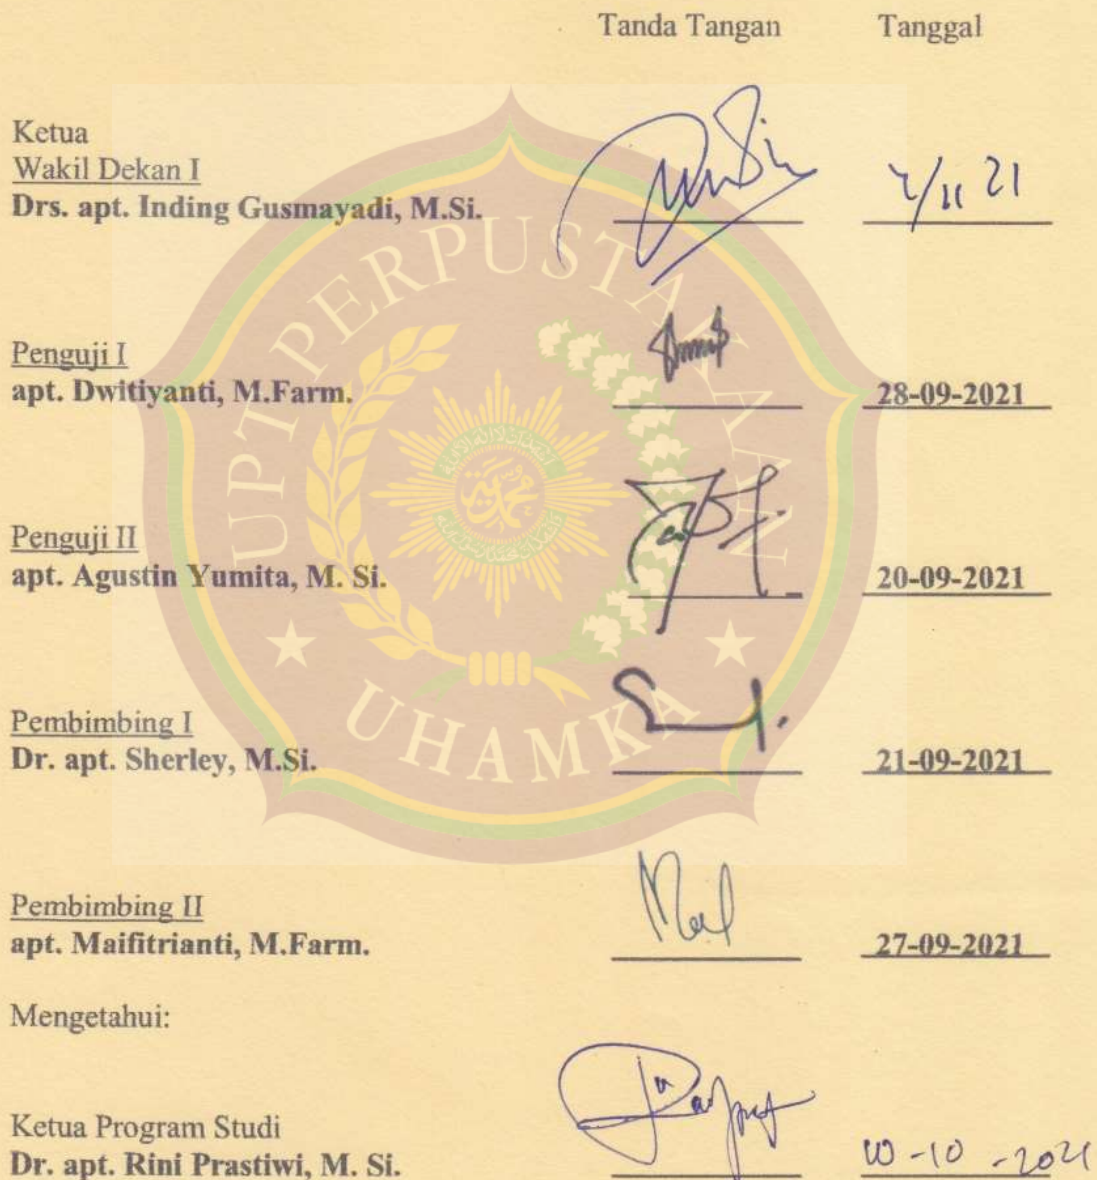 Tanda Tangan Tanggal
Ketua
Wakil Dekan I
Drs. apt. Inding Gusmayadi, M.Si.
/11 21
Penguji I
apt. Dwitiyanti, M.Farm.
28-09-2021
Penguji II
apt. Agustin Yumita, M. Si.
20-09-2021
Pembimbing I
Dr. apt. Sherley, M.Si.
21-09-2021
Pembimbing II
apt. Maifitrianti, M.Farm.
27-09-2021
Mengetahui:
Ketua Program Studi
Dr. apt. Rini Prastiwi, M. Si.
10-10-2021
UPT PERPUSTAKAAN
UHAMKA
محمد